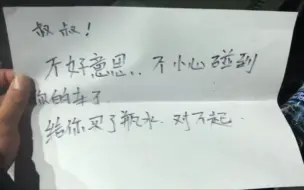 叔叔！
不好意思..不小心碰到
你的车了
给你买了瓶水.对不起.